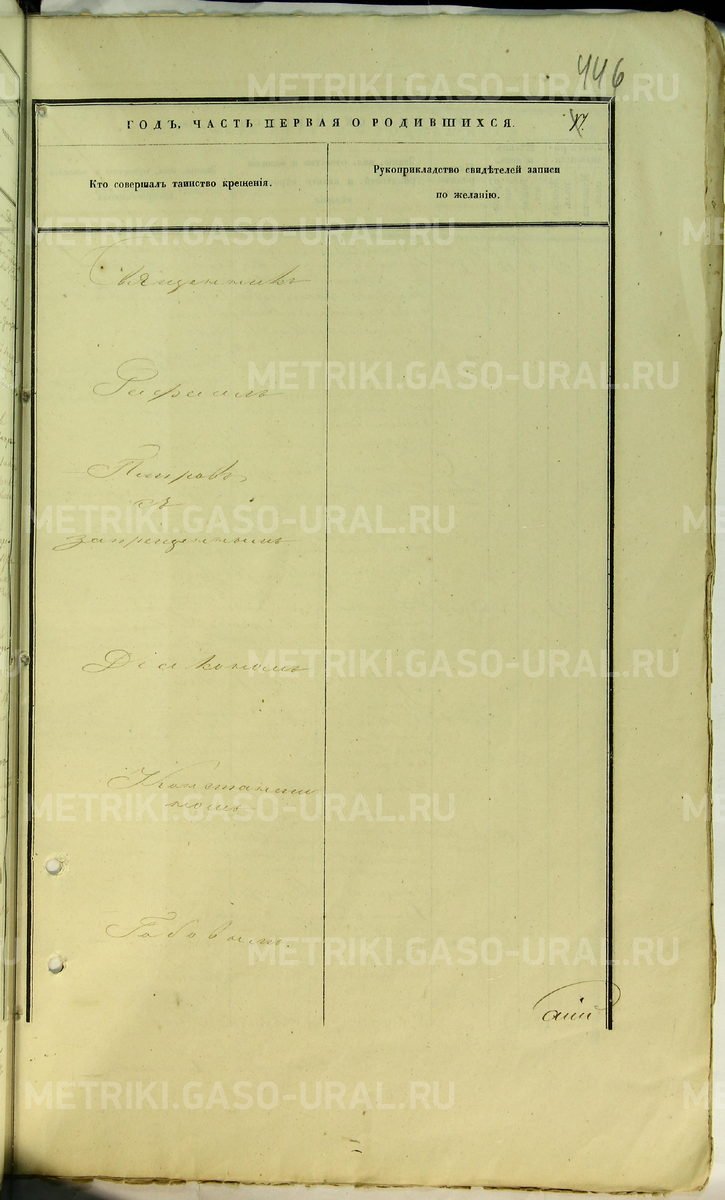 446
ГОДЪ, ЧАСТЬ ПЕРВАЯ О РОДИВШИХСЯ.
Кто совершалъ таинство крещенія.
Рукоприкладство свидѣтелей записи
по желанію.
Священникъ
Рафаилъ
Пировъ
съ
запрещеннымъ
Діакономъ
Константи
номъ
METRIKI.GASO-URAL.RU